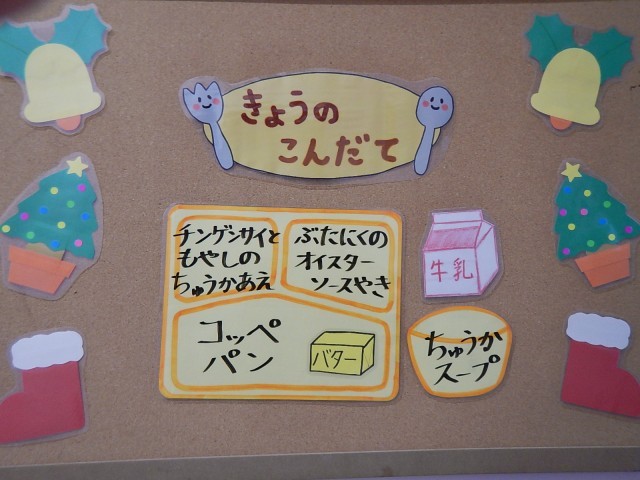 きょうの
こんだて
チンゲンサイと
もやしの
ちゅうかあえ
ぶたにくの
オイスター
ソースやき
牛乳
コッペ
パン
バター
ちゅうか
スープ